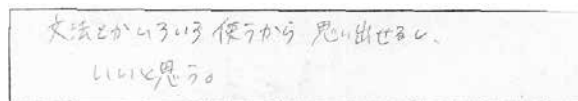 文法とかいろいろ使うから 思い出せるし、
いいと思う。